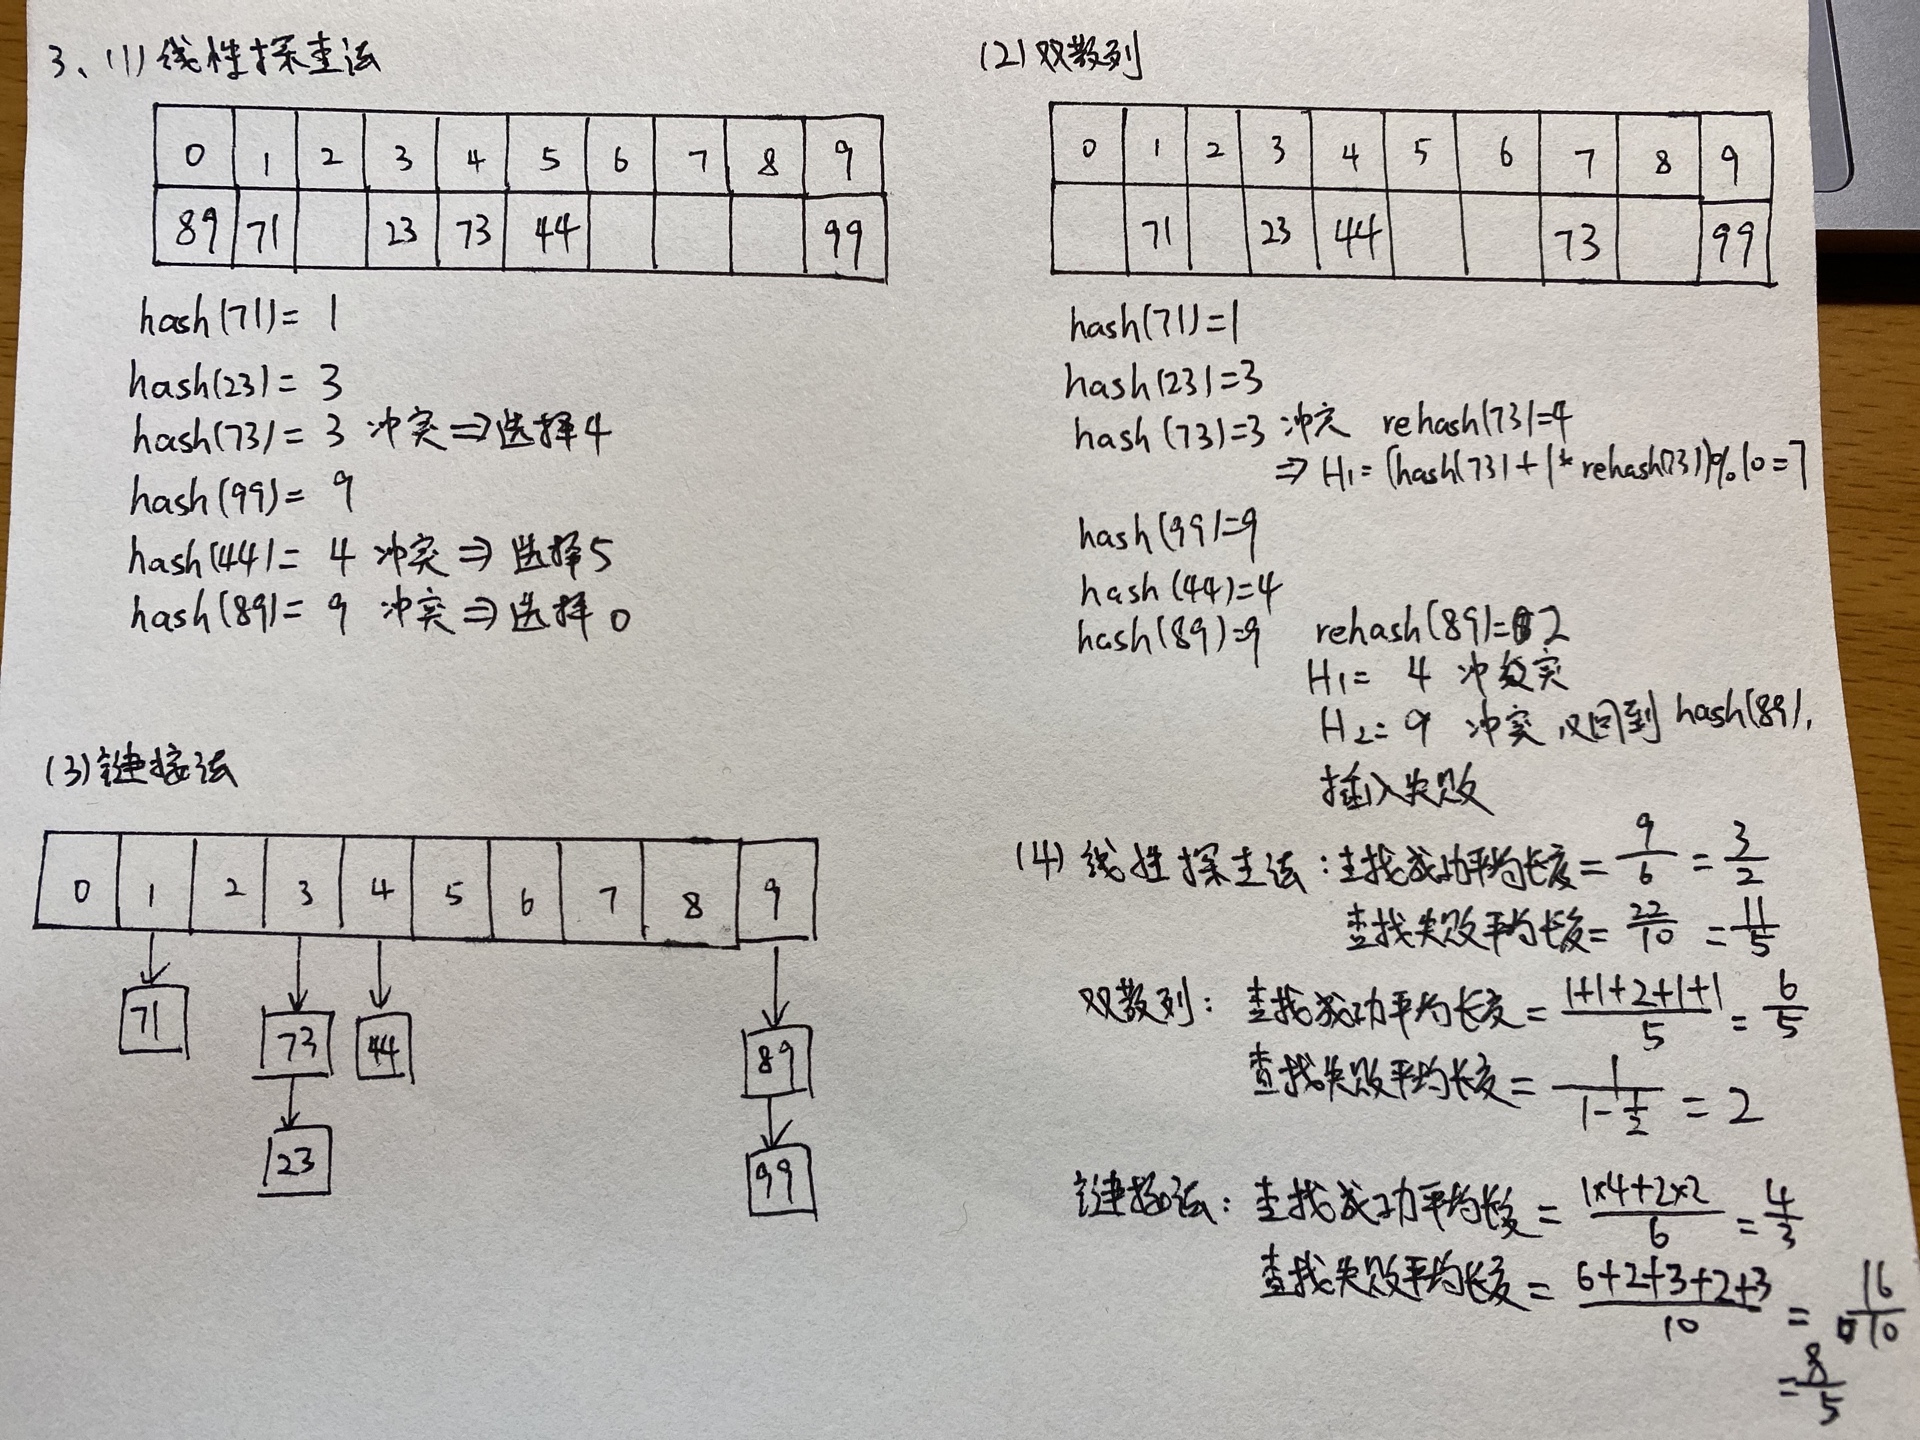 3、(1) 线性探查法
0 1 2 3 4 5 6 7 8 9
89 71 23 73 44 99
hash(71)= 1
hash(23)= 3
hash(73)= 3 冲突⇒选择4
hash(99)= 9
hash(44)= 4 冲突⇒选择5
hash(89)= 9 冲突⇒选择0
(2) 双散列
0 1 2 3 4 5 6 7 8 9
71 23 44 73 99
hash(71)=1
hash(23)=3
hash(73)=3 冲突 rehash(73)=4
⇒ H₁= (hash(73)+1*rehash(73))%10=7
hash(99)=9
hash(44)=4
hash(89)=9 rehash(89)=2
H₁= 4 冲突
H₂= 9 冲突,又回到 hash(89),
插入失败
(3) 链接法
0 1 2 3 4 5 6 7 8 9
71 73 44 89
23 99
(4) 线性探查法:查找成功平均长度= 9/6 = 3/2
查找失败平均长度= 22/10 = 11/5
双散列: 查找成功平均长度= (1+1+2+1+1)/5 = 6/5
查找失败平均长度= 1/(1-1/2) = 2
链接法: 查找成功平均长度= (1×4+2×2)/6 = 4/3
查找失败平均长度= (6+2+3+2+3)/10 = 16/10
= 8/5